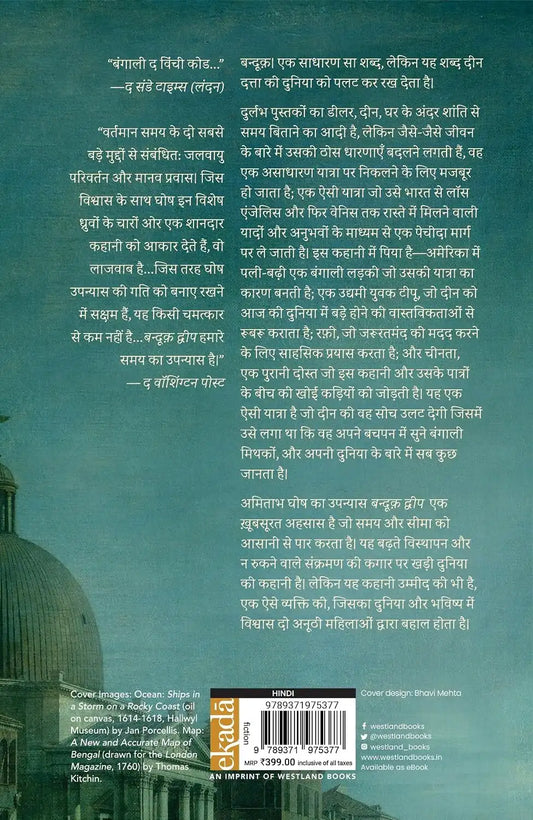 “बंगाली द विंची कोड...”
—द संडे टाइम्स (लंदन)
“वर्तमान समय के दो सबसे
बड़े मुद्दों से संबंधित: जलवायु
परिवर्तन और मानव प्रवास। जिस
विश्वास के साथ घोष इन विशेष
ध्रुवों के चारों ओर एक शानदार
कहानी को आकार देते हैं, वो
लाजवाब है...जिस तरह घोष
उपन्यास की गति को बनाए रखने
में सक्षम हैं, यह किसी चमत्कार
से कम नहीं है...बन्दूक़ द्वीप हमारे
समय का उपन्यास है।”
— द वॉशिंग्टन पोस्ट
बन्दूक़। एक साधारण सा शब्द, लेकिन यह शब्द दीन
दत्ता की दुनिया को पलट कर रख देता है।
दुर्लभ पुस्तकों का डीलर, दीन, घर के अंदर शांति से
समय बिताने का आदी है, लेकिन जैसे-जैसे जीवन
के बारे में उसकी ठोस धारणाएँ बदलने लगती हैं, वह
एक असाधारण यात्रा पर निकलने के लिए मजबूर
हो जाता है; एक ऐसी यात्रा जो उसे भारत से लॉस
एंजेलिस और फिर वेनिस तक रास्ते में मिलने वाली
यादों और अनुभवों के माध्यम से एक पेचीदा मार्ग
पर ले जाती है। इस कहानी में पिया है—अमेरिका में
पली-बढ़ी एक बंगाली लड़की जो उसकी यात्रा का
कारण बनती है; एक उद्यमी युवक टीपू, जो दीन को
आज की दुनिया में बड़े होने की वास्तविकताओं से
रूबरू कराता है; रफ़ी, जो जरूरतमंद की मदद करने
के लिए साहसिक प्रयास करता है; और चीनता,
एक पुरानी दोस्त जो इस कहानी और उसके पात्रों
के बीच की खोई कड़ियों को जोड़ती है। यह एक
ऐसी यात्रा है जो दीन की वह सोच उलट देगी जिसमें
उसे लगा था कि वह अपने बचपन में सुने बंगाली
मिथकों, और अपनी दुनिया के बारे में सब कुछ
जानता है।
अमिताभ घोष का उपन्यास बन्दूक़ द्वीप एक
ख़ूबसूरत अहसास है जो समय और सीमा को
आसानी से पार करता है। यह बढ़ते विस्थापन और
न रुकने वाले संक्रमण की कगार पर खड़ी दुनिया
की कहानी है। लेकिन यह कहानी उम्मीद की भी है,
एक ऐसे व्यक्ति की, जिसका दुनिया और भविष्य में
विश्वास दो अनूठी महिलाओं द्वारा बहाल होता है।
Cover Images: Ocean: Ships in
a Storm on a Rocky Coast (oil
on canvas, 1614-1618, Hallwyl
Museum) by Jan Porcellis. Map:
A New and Accurate Map of
Bengal (drawn for the London
Magazine, 1760) by Thomas
Kitchin.
ekadā
fiction
HINDI
9789371975377
9 789371 975377
MRP ₹399.00 inclusive of all taxes
AN IMPRINT OF WESTLAND BOOKS
Cover design: Bhavi Mehta
westlandbooks
@westlandbooks
westland_books
www.westlandbooks.in
Available as eBook